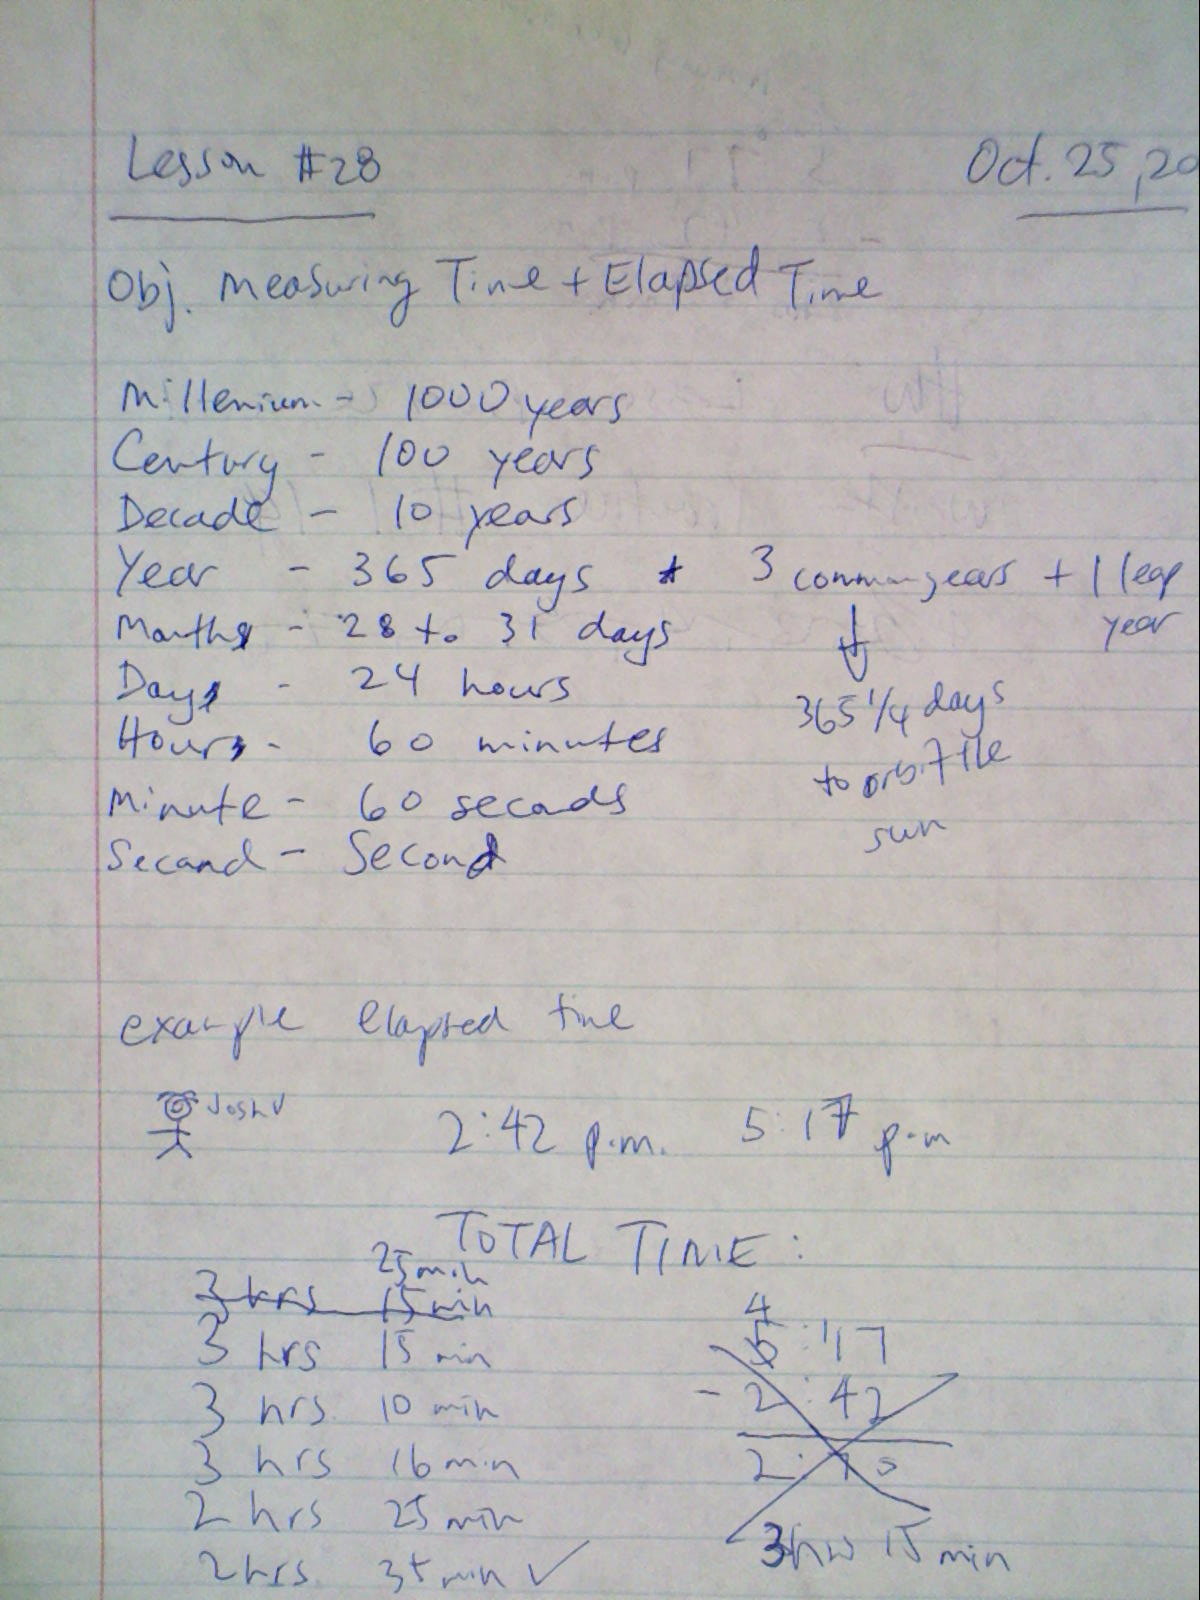 Lesson #28 Oct. 25, 20
Obj. Measuring Time + Elapsed Time
Millenium - 1000 years
Century - 100 years
Decade - 10 years
Year - 365 days * 3 common years + 1 leap
year
Months - 28 to 31 days
Days - 24 hours
365 1/4 days
Hours - 60 minutes
to orbit the
Minute - 60 seconds
sun
Second - Second
example elapsed time
Josh 2:42 p.m. 5:17 p.m
TOTAL TIME:
25 min
3 hrs 15 min
3 hrs 15 min
3 hrs 10 min
3 hrs 16 min
2 hrs 25 min
2 hrs 35 min ✓
4
5:17
- 2:42
3 hrs 15 min